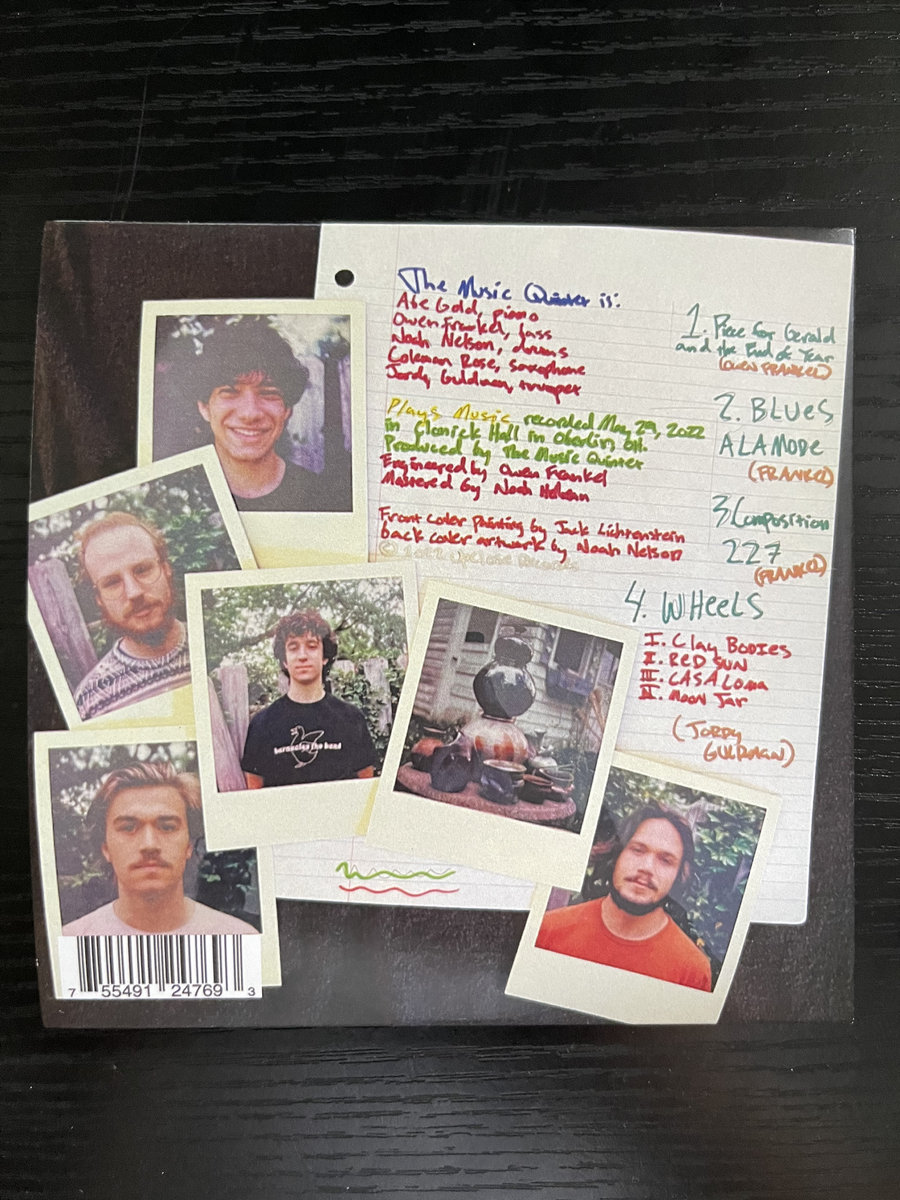 The Music Quintet is:
Abe Gold, piano
Owen Frankel, bass
Noah Nelson, drums
Coleman Rose, saxophone
Jordy Guldman, trumpet
Plays Music recorded May 29, 2022
in Clonick Hall in Oberlin, OH.
Produced by The Music Quintet
Engineered by Owen Frankel
Mastered by Noah
Front cover painting by Jack Lichtenstein
back cover artwork by Noah Nelson
© 2022 Records
1. Piece for Gerald
and the End of Year
(OWEN FRANKEL)
2. BLUES
ALAMODE
(FRANKEL)
3. Composition
227
(FRANKEL)
4. WHEELS
I. Clay Bodies
II. RED SUN
III. CASA LOMA
IV. Moon Jar
(JORDY
GULDMAN)
the band
7 55491 24769 3